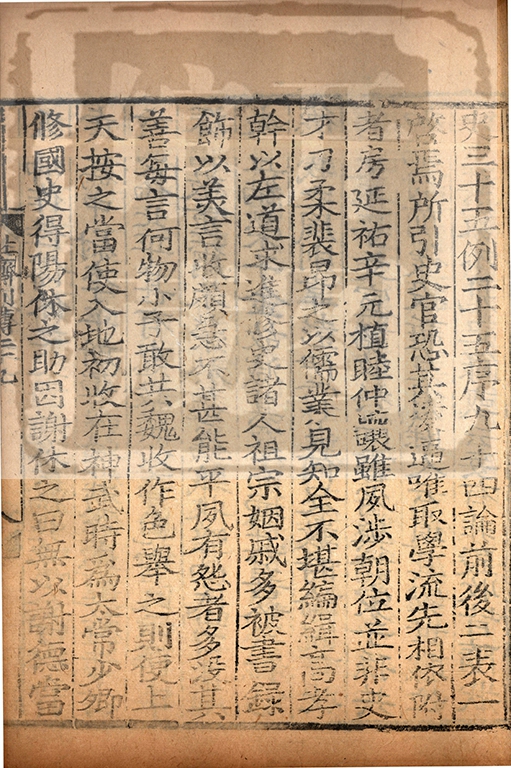 史三十五例二十五序九十四論前後二表一
啓焉所引史官恐其凌逼唯取學流先相依附
者房延祐辛元植睦仲讓雖夙涉朝位並非史
才刁柔裴昂之以儒業見知全不堪編緝高孝
幹以左道求進修史諸人祖宗姻戚多被書錄
飾以美言收頗急不甚能平夙有怨者多没其
善每言何物小子敢共魏收作色舉之則使上
天按之當使入地初收在神武時爲太常少卿
修國史得陽休之助因謝休之曰無以謝德當
北齊列傳二九